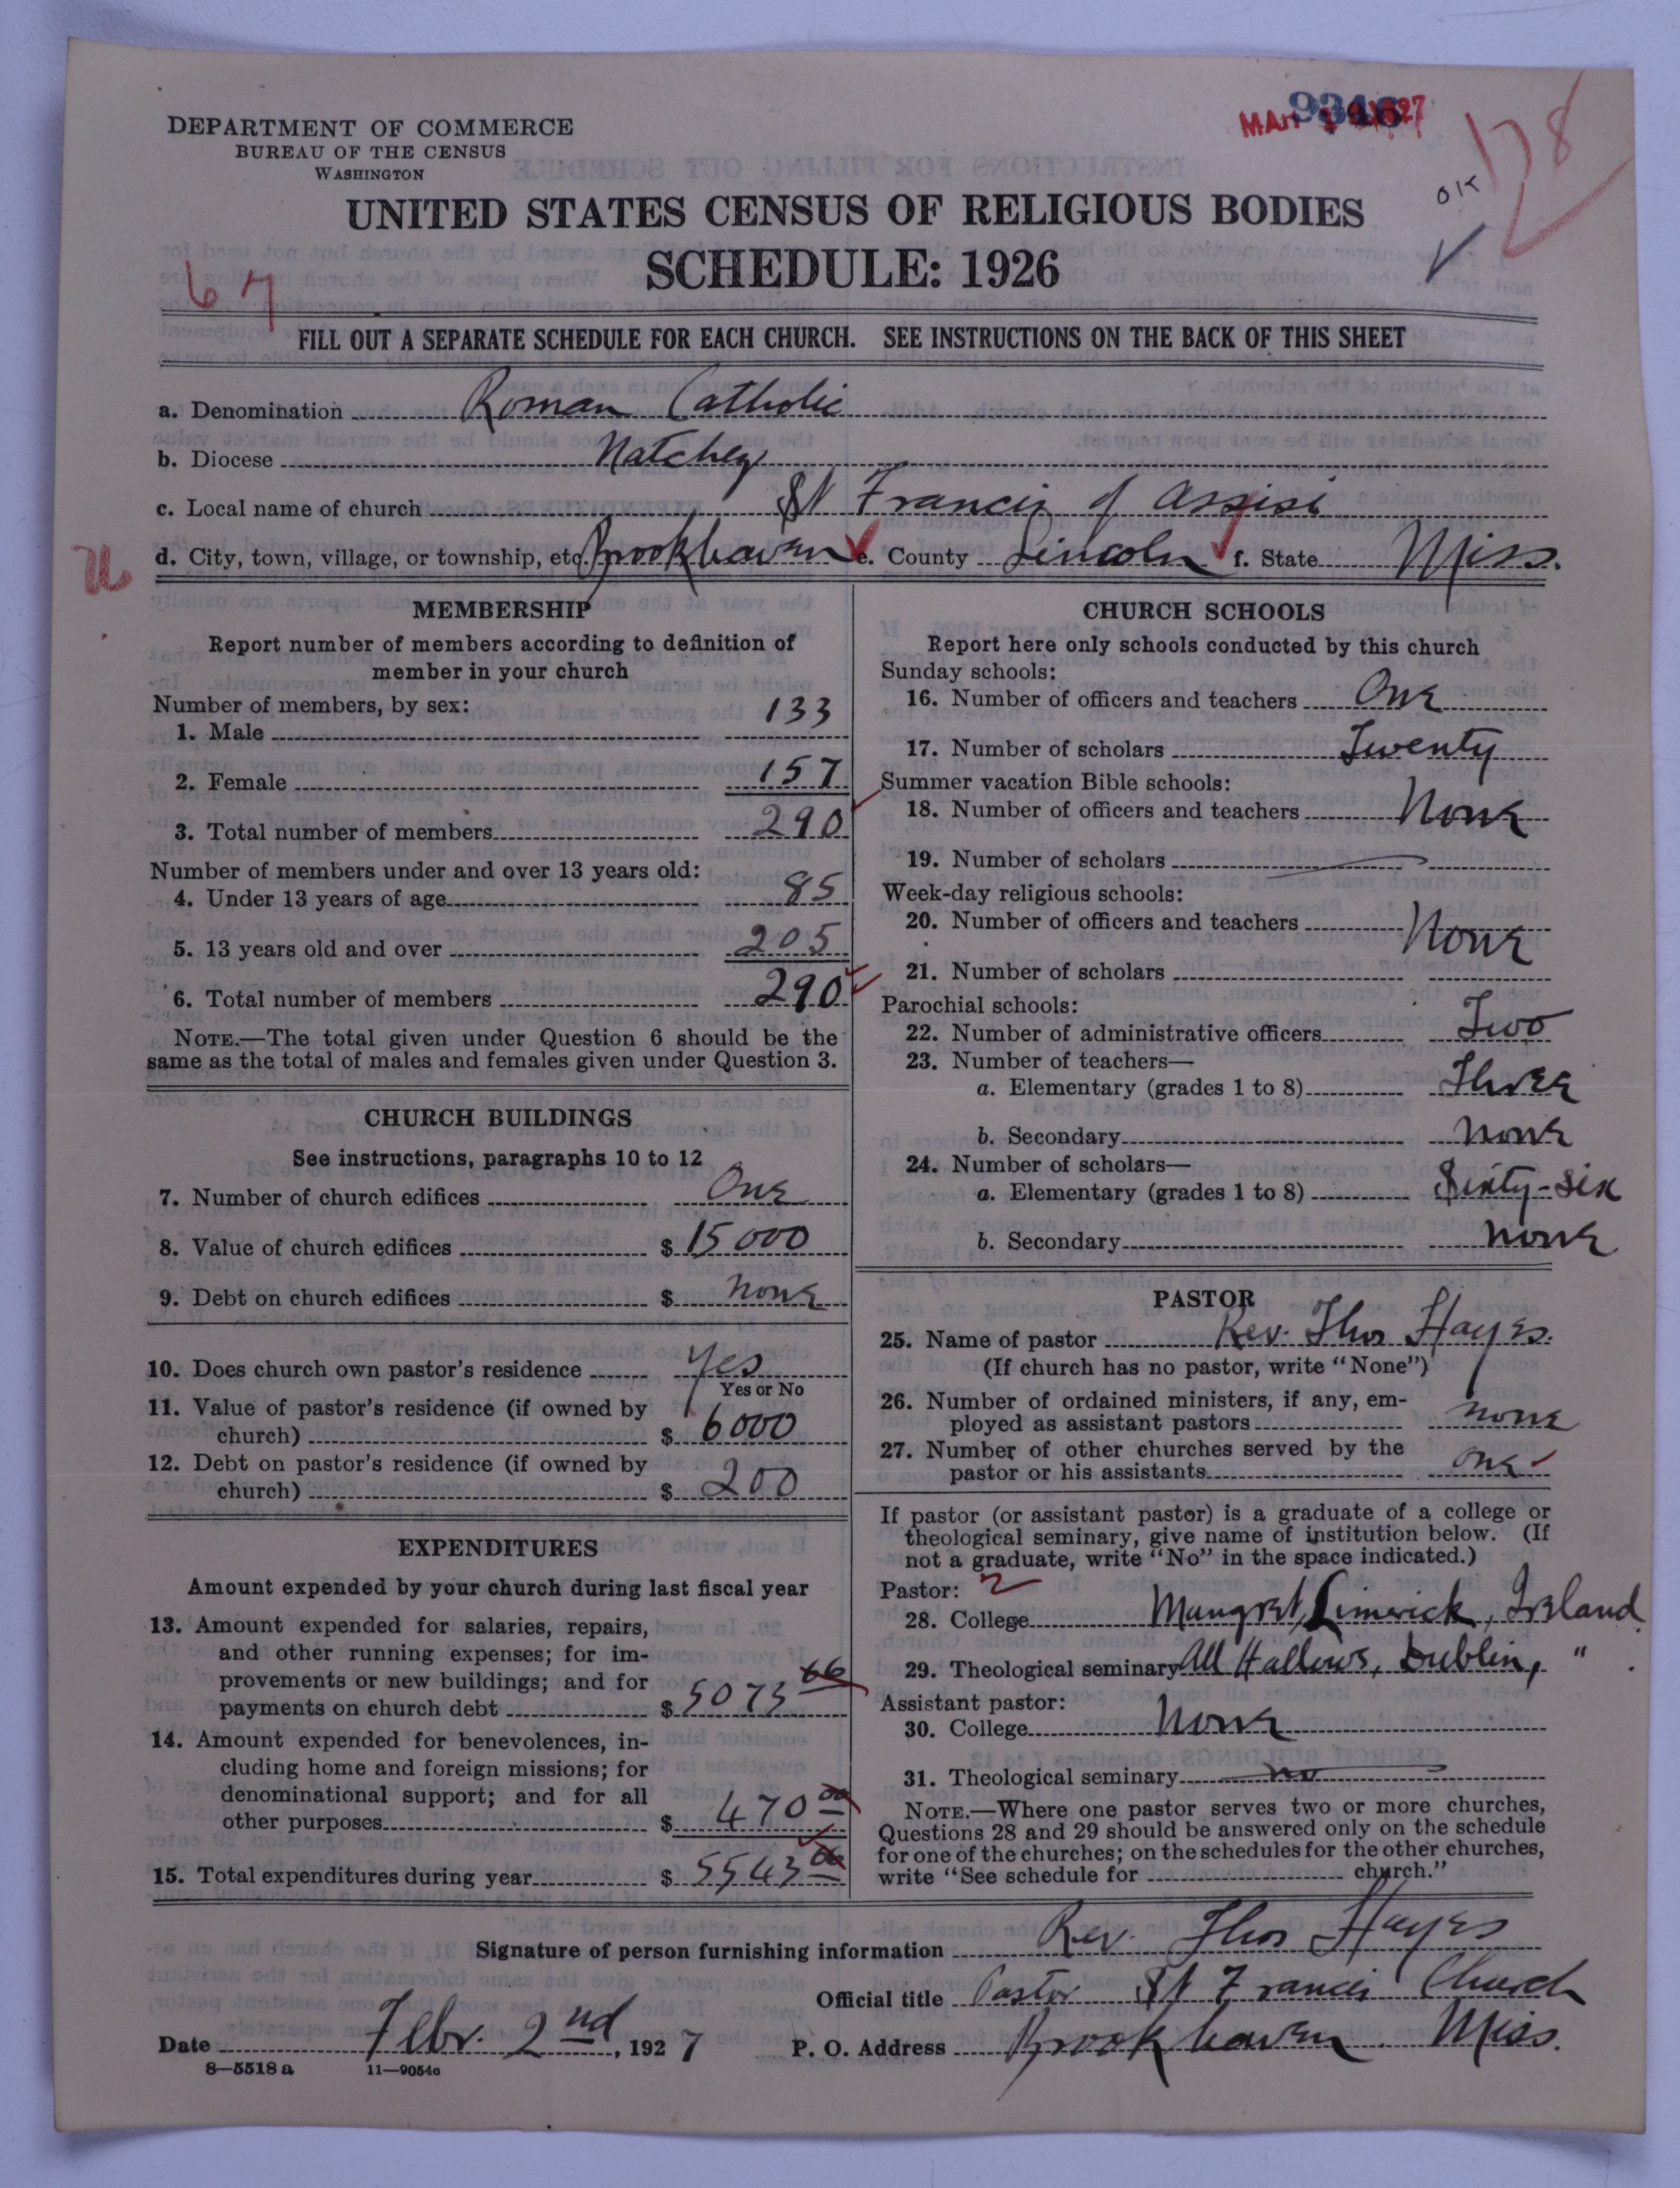 DEPARTMENT OF COMMERCE
BUREAU OF THE CENSUS
WASHINGTON
9346
128
OK
UNITED STATES CENSUS OF RELIGIOUS BODIES
SCHEDULE: 1926
67
FILL OUT A SEPARATE SCHEDULE FOR EACH CHURCH. SEE INSTRUCTIONS ON THE BACK OF THIS SHEET
a. Denomination Roman Catholic
b. Diocese Natchez
c. Local name of church St Francis of Assisi
d. City, town, village, or township, etc. Brookhaven e. County Lincoln f. State Miss.
MEMBERSHIP
Report number of members according to definition of
member in your church
Number of members, by sex:
1. Male 133
2. Female 157
3. Total number of members 290
Number of members under and over 13 years old:
4. Under 13 years of age 85
5. 13 years old and over 205
6. Total number of members 290
NOTE.—The total given under Question 6 should be the
same as the total of males and females given under Question 3.
CHURCH BUILDINGS
See instructions, paragraphs 10 to 12
7. Number of church edifices One
8. Value of church edifices $ 15 000
9. Debt on church edifices $ none
10. Does church own pastor's residence Yes
Yes or No
11. Value of pastor's residence (if owned by
church) $ 6000
12. Debt on pastor's residence (if owned by
church) $ 200
EXPENDITURES
Amount expended by your church during last fiscal year
13. Amount expended for salaries, repairs,
and other running expenses; for im-
provements or new buildings; and for
payments on church debt $ 5073 66
14. Amount expended for benevolences, in-
cluding home and foreign missions; for
denominational support; and for all
other purposes $ 470 00
15. Total expenditures during year $ 5543 66
CHURCH SCHOOLS
Report here only schools conducted by this church
Sunday schools:
16. Number of officers and teachers One
17. Number of scholars Twenty
Summer vacation Bible schools:
18. Number of officers and teachers None
19. Number of scholars
Week-day religious schools:
20. Number of officers and teachers None
21. Number of scholars
Parochial schools:
22. Number of administrative officers Two
23. Number of teachers—
a. Elementary (grades 1 to 8) Three
b. Secondary none
24. Number of scholars—
a. Elementary (grades 1 to 8) Sixty-six
b. Secondary none
PASTOR
25. Name of pastor Rev. Thos Hayes.
(If church has no pastor, write "None")
26. Number of ordained ministers, if any, em-
ployed as assistant pastors none
27. Number of other churches served by the
pastor or his assistants one
If pastor (or assistant pastor) is a graduate of a college or
theological seminary, give name of institution below. (If
not a graduate, write "No" in the space indicated.)
Pastor: 2
28. College Mungret, Limerick, Ireland
29. Theological seminary All Hallows, Dublin, "
Assistant pastor:
30. College None
31. Theological seminary no
NOTE.—Where one pastor serves two or more churches,
Questions 28 and 29 should be answered only on the schedule
for one of the churches; on the schedules for the other churches,
write "See schedule for church."
Signature of person furnishing information Rev. Thos Hayes
Official title Pastor St Francis Church
Date Febr. 2nd, 1927 P. O. Address Brookhaven Miss.
8—5518a 11—9054a